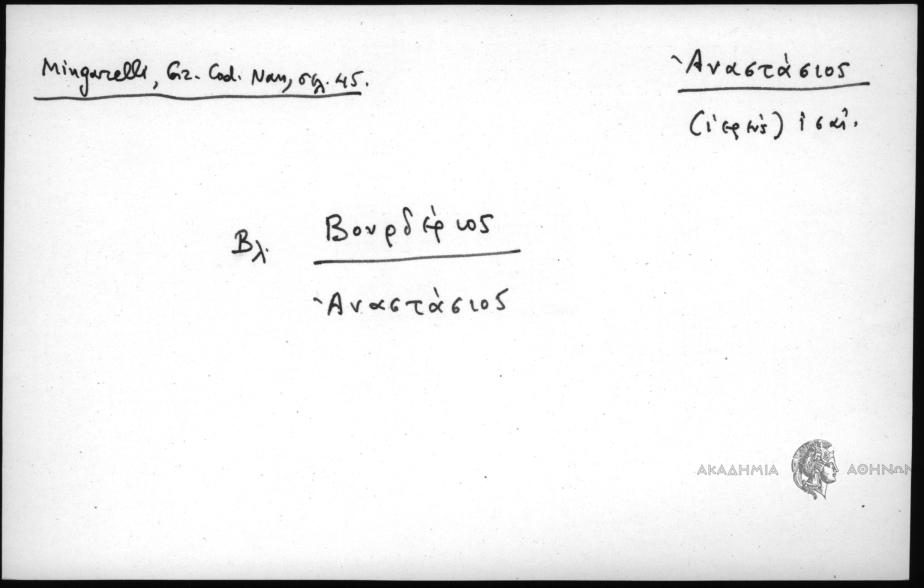 Mingarelli, Gr. Cod. Nan, σελ. 45.
Ἀναστάσιος
(ἱερεὺς)
Βλ. Βουρδέριος
Ἀναστάσιος
ΑΚΑΔΗΜΙΑ ΑΘΗΝΩΝ